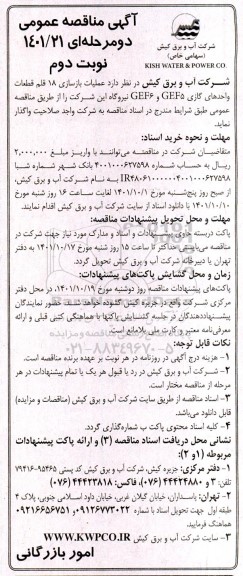 آگهی مناقصه عمومی
دومرحله‌ای ۱۴۰۱/۲۱
نوبت دوم
شرکت آب و برق کیش
(سهامی خاص)
KISH WATER & POWER CO.
شرکت آب و برق کیش در نظر دارد عملیات بازسازی ۱۸ قلم قطعات
واحدهای گازی GEF۵ و GEF۶ نیروگاه این شرکت را از طریق مناقصه
عمومی طبق شرایط مندرج در اسناد مناقصه به شرکت واجد صلاحیت واگذار
نماید.
مهلت و نحوه خرید اسناد:
متقاضیان شرکت در مناقصه می‌توانند با واریز مبلغ ۲,۰۰۰,۰۰۰
ریال به حساب شماره ۴۰۰۱۰۰۰۶۲۷۵۹۸ بانک شهر به شماره شبا
به نام شرکت آب و برق کیش،
از صبح روز پنج‌شنبه مورخ ۱۴۰۱/۱۰/۱ لغایت ساعت ۱۶ روز شنبه مورخ
۱۴۰۱/۱۰/۱۰ با دانلود اسناد از سایت شرکت آب و برق کیش اقدام نمایند.
مهلت و محل تحویل پیشنهادات مناقصه:
پاکت دربسته حاوی پیشنهادات و اسناد و مدارک مورد نیاز جهت شرکت در
مناقصه می‌بایستی حداکثر تا ساعت ۱۵ روز شنبه مورخ ۱۴۰۱/۱۰/۱۷ به دفتر
تهران یا دبیرخانه شرکت آب و برق کیش تحویل گردد.
زمان و محل گشایش پاکت‌های پیشنهادات:
پاکت‌های پیشنهادات مناقصه روز دوشنبه مورخ ۱۴۰۱/۱۰/۱۹، در محل دفتر
مرکزی شرکت واقع در جزیره کیش گشوده خواهد شد. حضور نمایندگان
پیشنهاددهندگان در جلسه گشایش پاکتها با هماهنگی کتبی قبلی و ارائه
معرفی‌نامه معتبر و کارت ملی بلامانع است.
نکات قابل توجه:
۱- هزینه درج آگهی در روزنامه در هر نوبت بر عهده برنده مناقصه است.
۲- شرکت آب و برق کیش در رد یا قبول هر یک یا تمام پیشنهادات در هر
مرحله از مناقصه مختار است.
۳- اسناد مناقصه از طریق سایت شرکت آب و برق کیش (مناقصات و مزایده)
قابل دانلود می‌باشد.
۴- کلیه اسناد محتوی پاکت ب شماره‌گذاری گردد.
نشانی محل دریافت اسناد مناقصه (۳) و ارائه پاکت پیشنهادات
مربوطه (۱ و ۲):
۱- دفتر مرکزی: جزیره کیش، شرکت آب و برق کیش کد پستی ۹۵۴۶۵-۷۹۴۱۶
تلفن: ۳ و ۴۴۴۲۴۸۸۰ (۰۷۶)، فاکس: ۴۴۴۲۳۸۱۸ (۰۷۶)
۲- تهران: پاسداران، خیابان گیلان غربی، خیابان داود اسلامی جنوبی، پلاک ۴
طبقه اول جهت تحویل اسناد با شماره ۰۹۱۲۶۷۷۳۰۲۲ و ۰۹۲۱۶۶۵۶۷۵۱
هماهنگ فرمایید.
۳- سایت شرکت آب و برق کیش WWW.KWPCO.IR
امور بازرگانی
۰۲۱-۸۸۳۴۹۶۷۰-۵